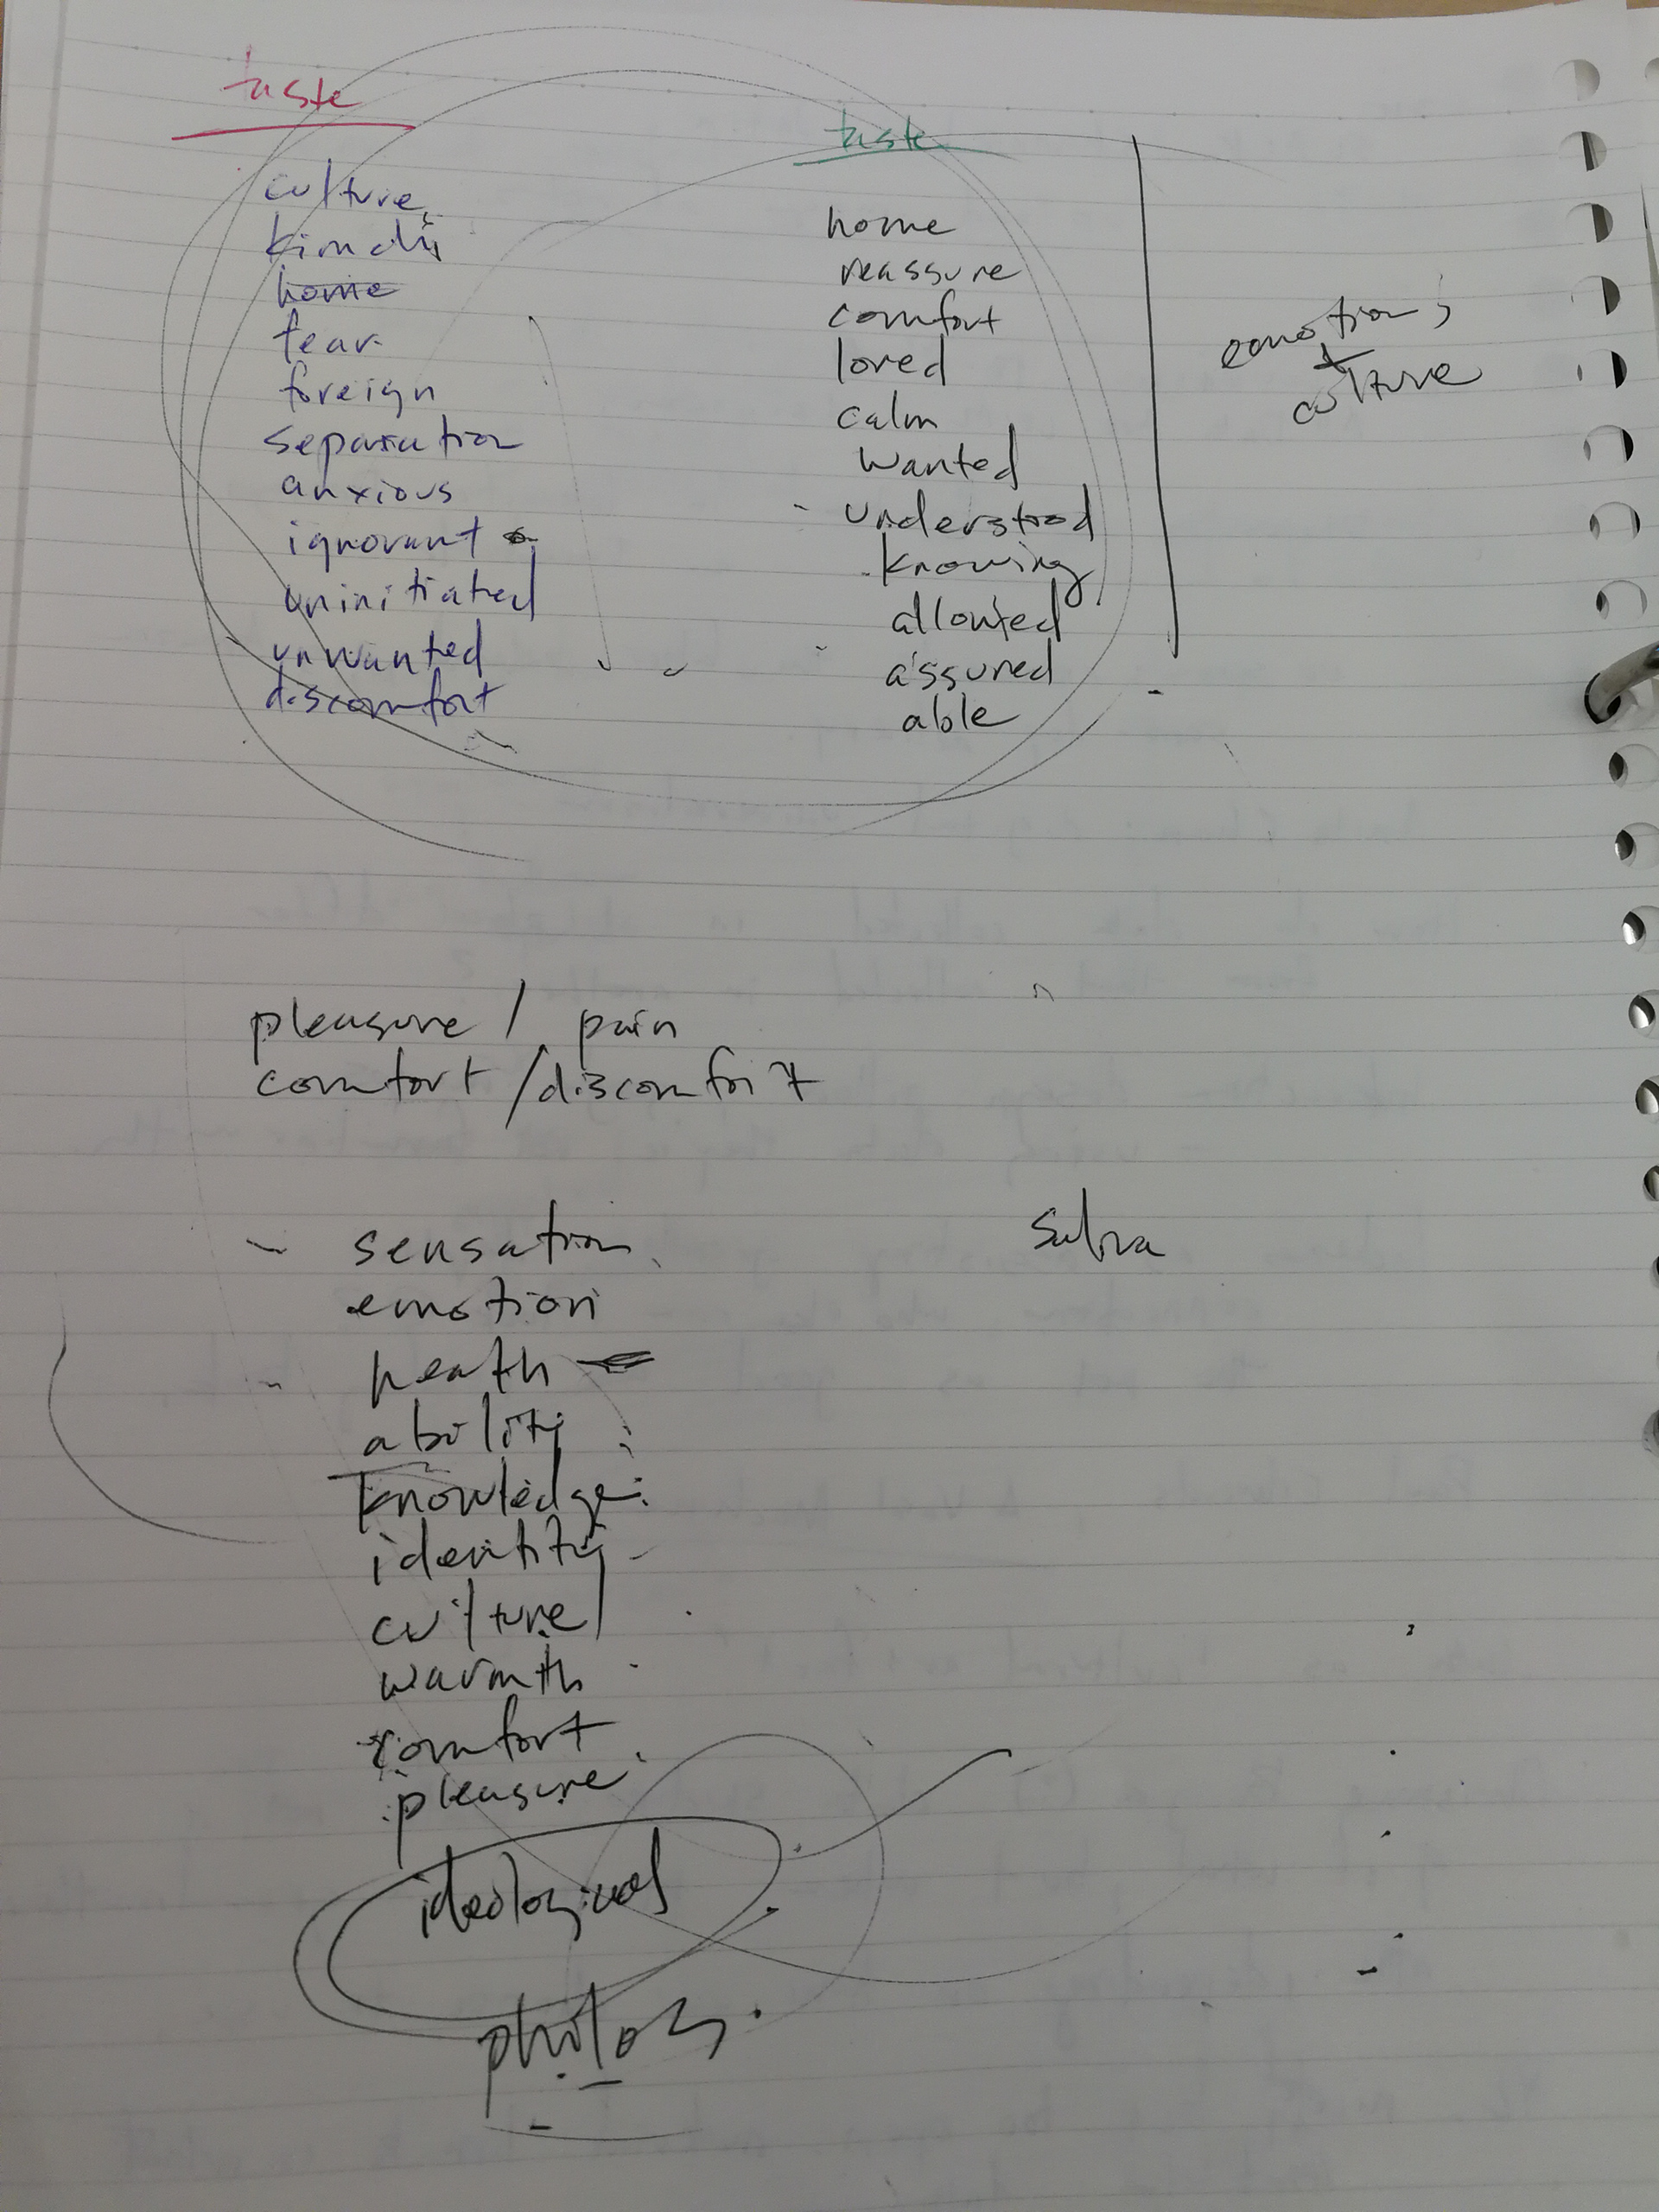 taste
culture
kimchi
home
fear
foreign
separation
anxious
ignorant
uninitiated
unwanted
discomfort
taste
home
reassure
comfort
loved
calm
wanted
understood
knowing
allowed
assured
able
emotion
+
culture
pleasure / pain
comfort / discomfort
sensation
emotion
ability
knowledge
identity
culture
warmth
comfort
pleasure
ideological